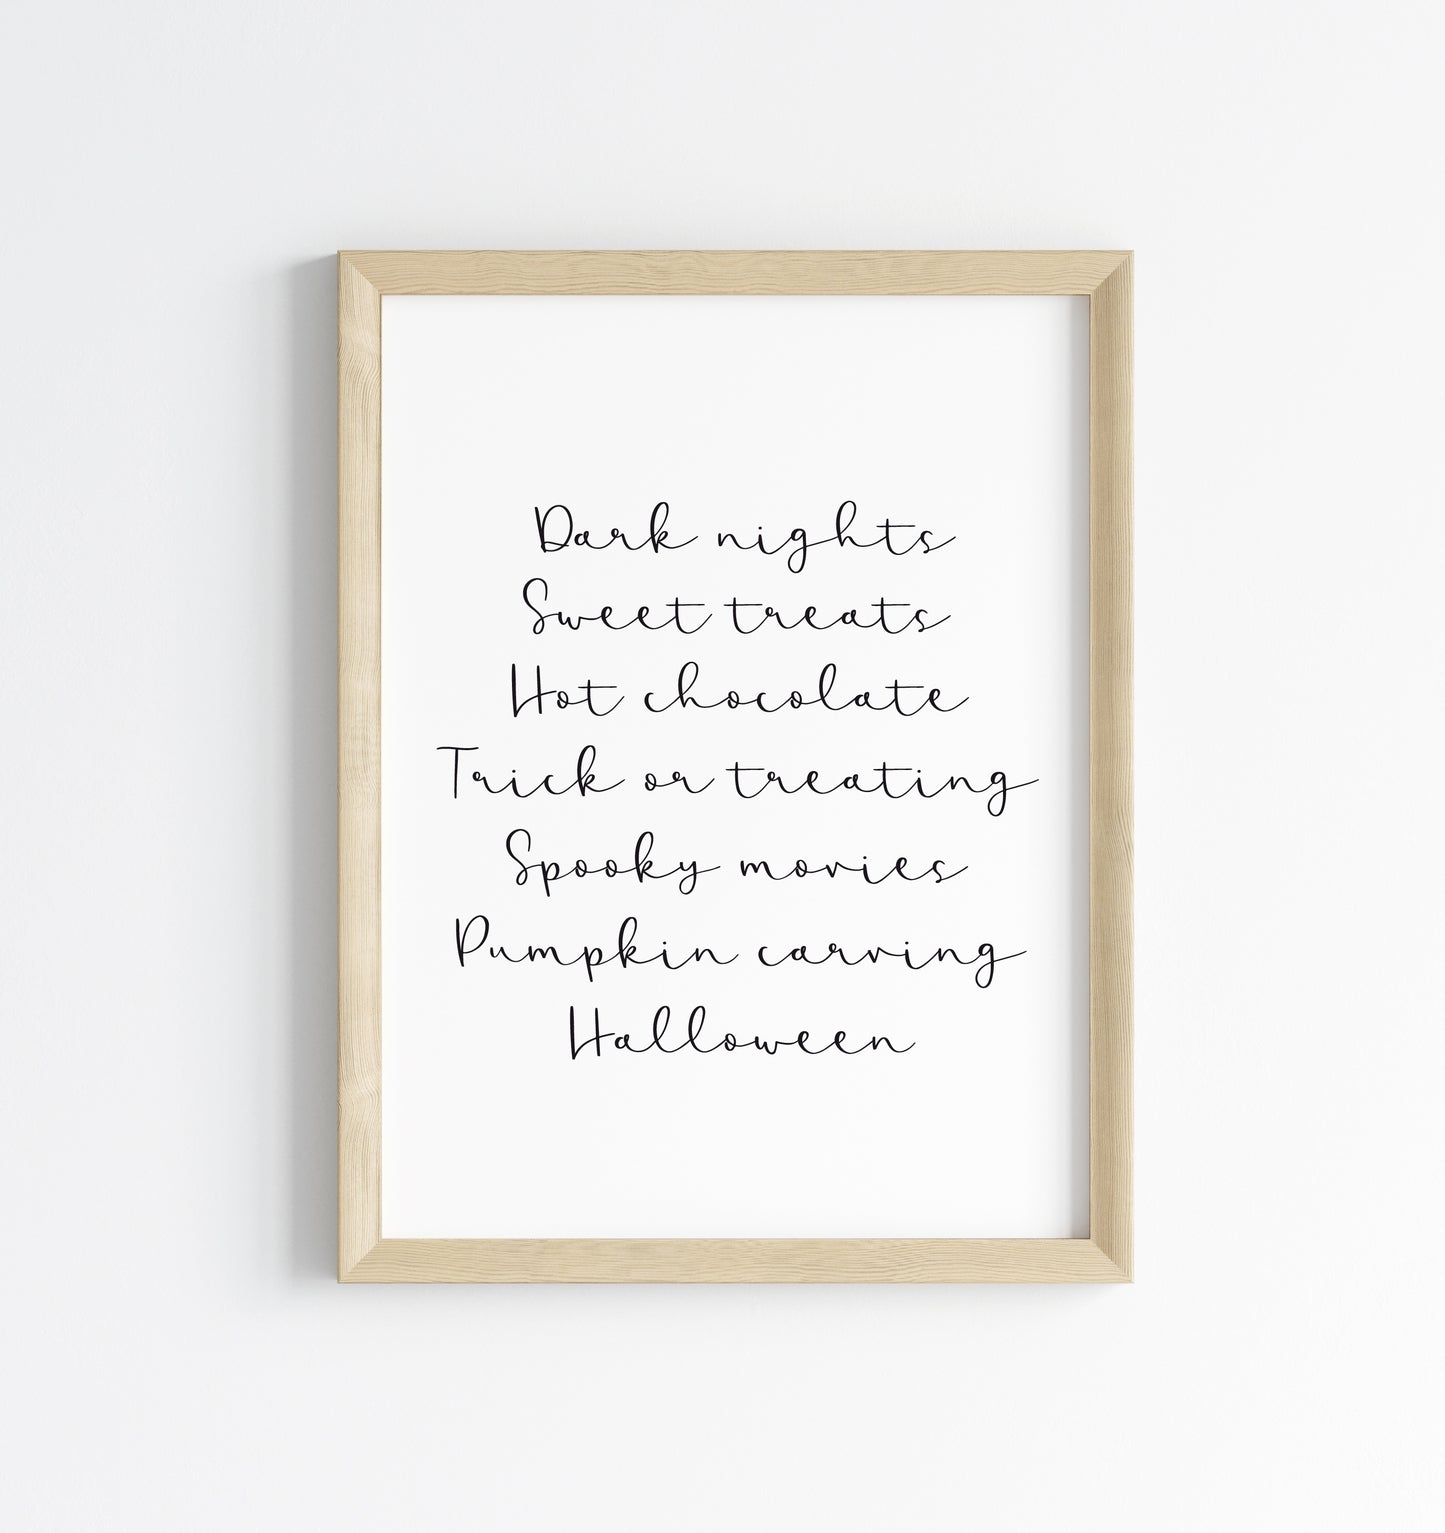 Dark nights
Sweet treats
Hot chocolate
Trick or treating
Spooky movies
Pumpkin carving
Halloween